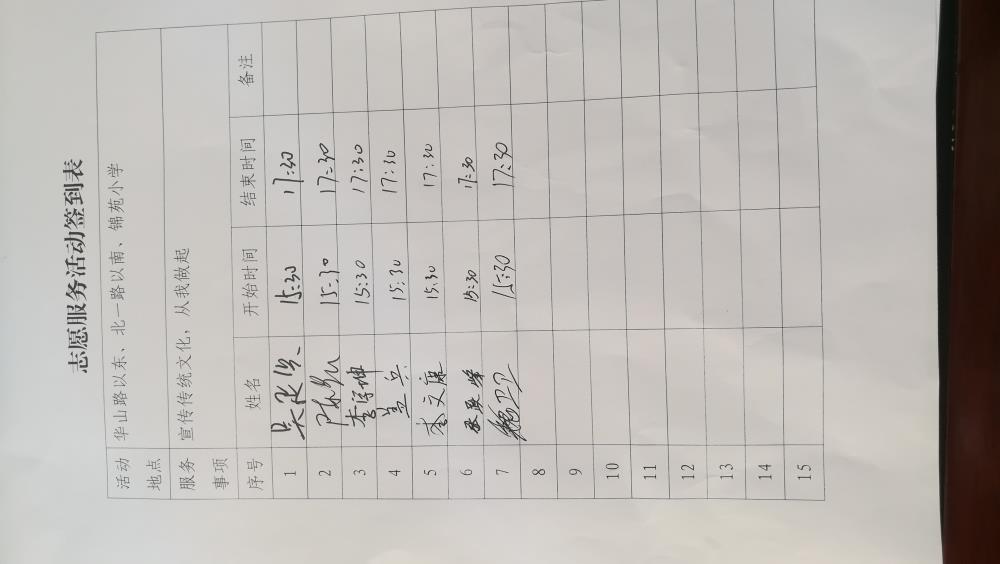 志愿服务活动签到表
活动地点 华山路以东、北一路以南、锦苑小学
服务事项 宣传传统文化，从我做起
序号 姓名 开始时间 结束时间 备注
1 15:30 17:30
2 15:30 17:30
3 李学坤 15:30 17:30
4 兵 15:30 17:30
5 李文廉 15:30 17:30
6 15:30 17:30
7 魏卫卫 15:30 17:30
8
9
10
11
12
13
14
15